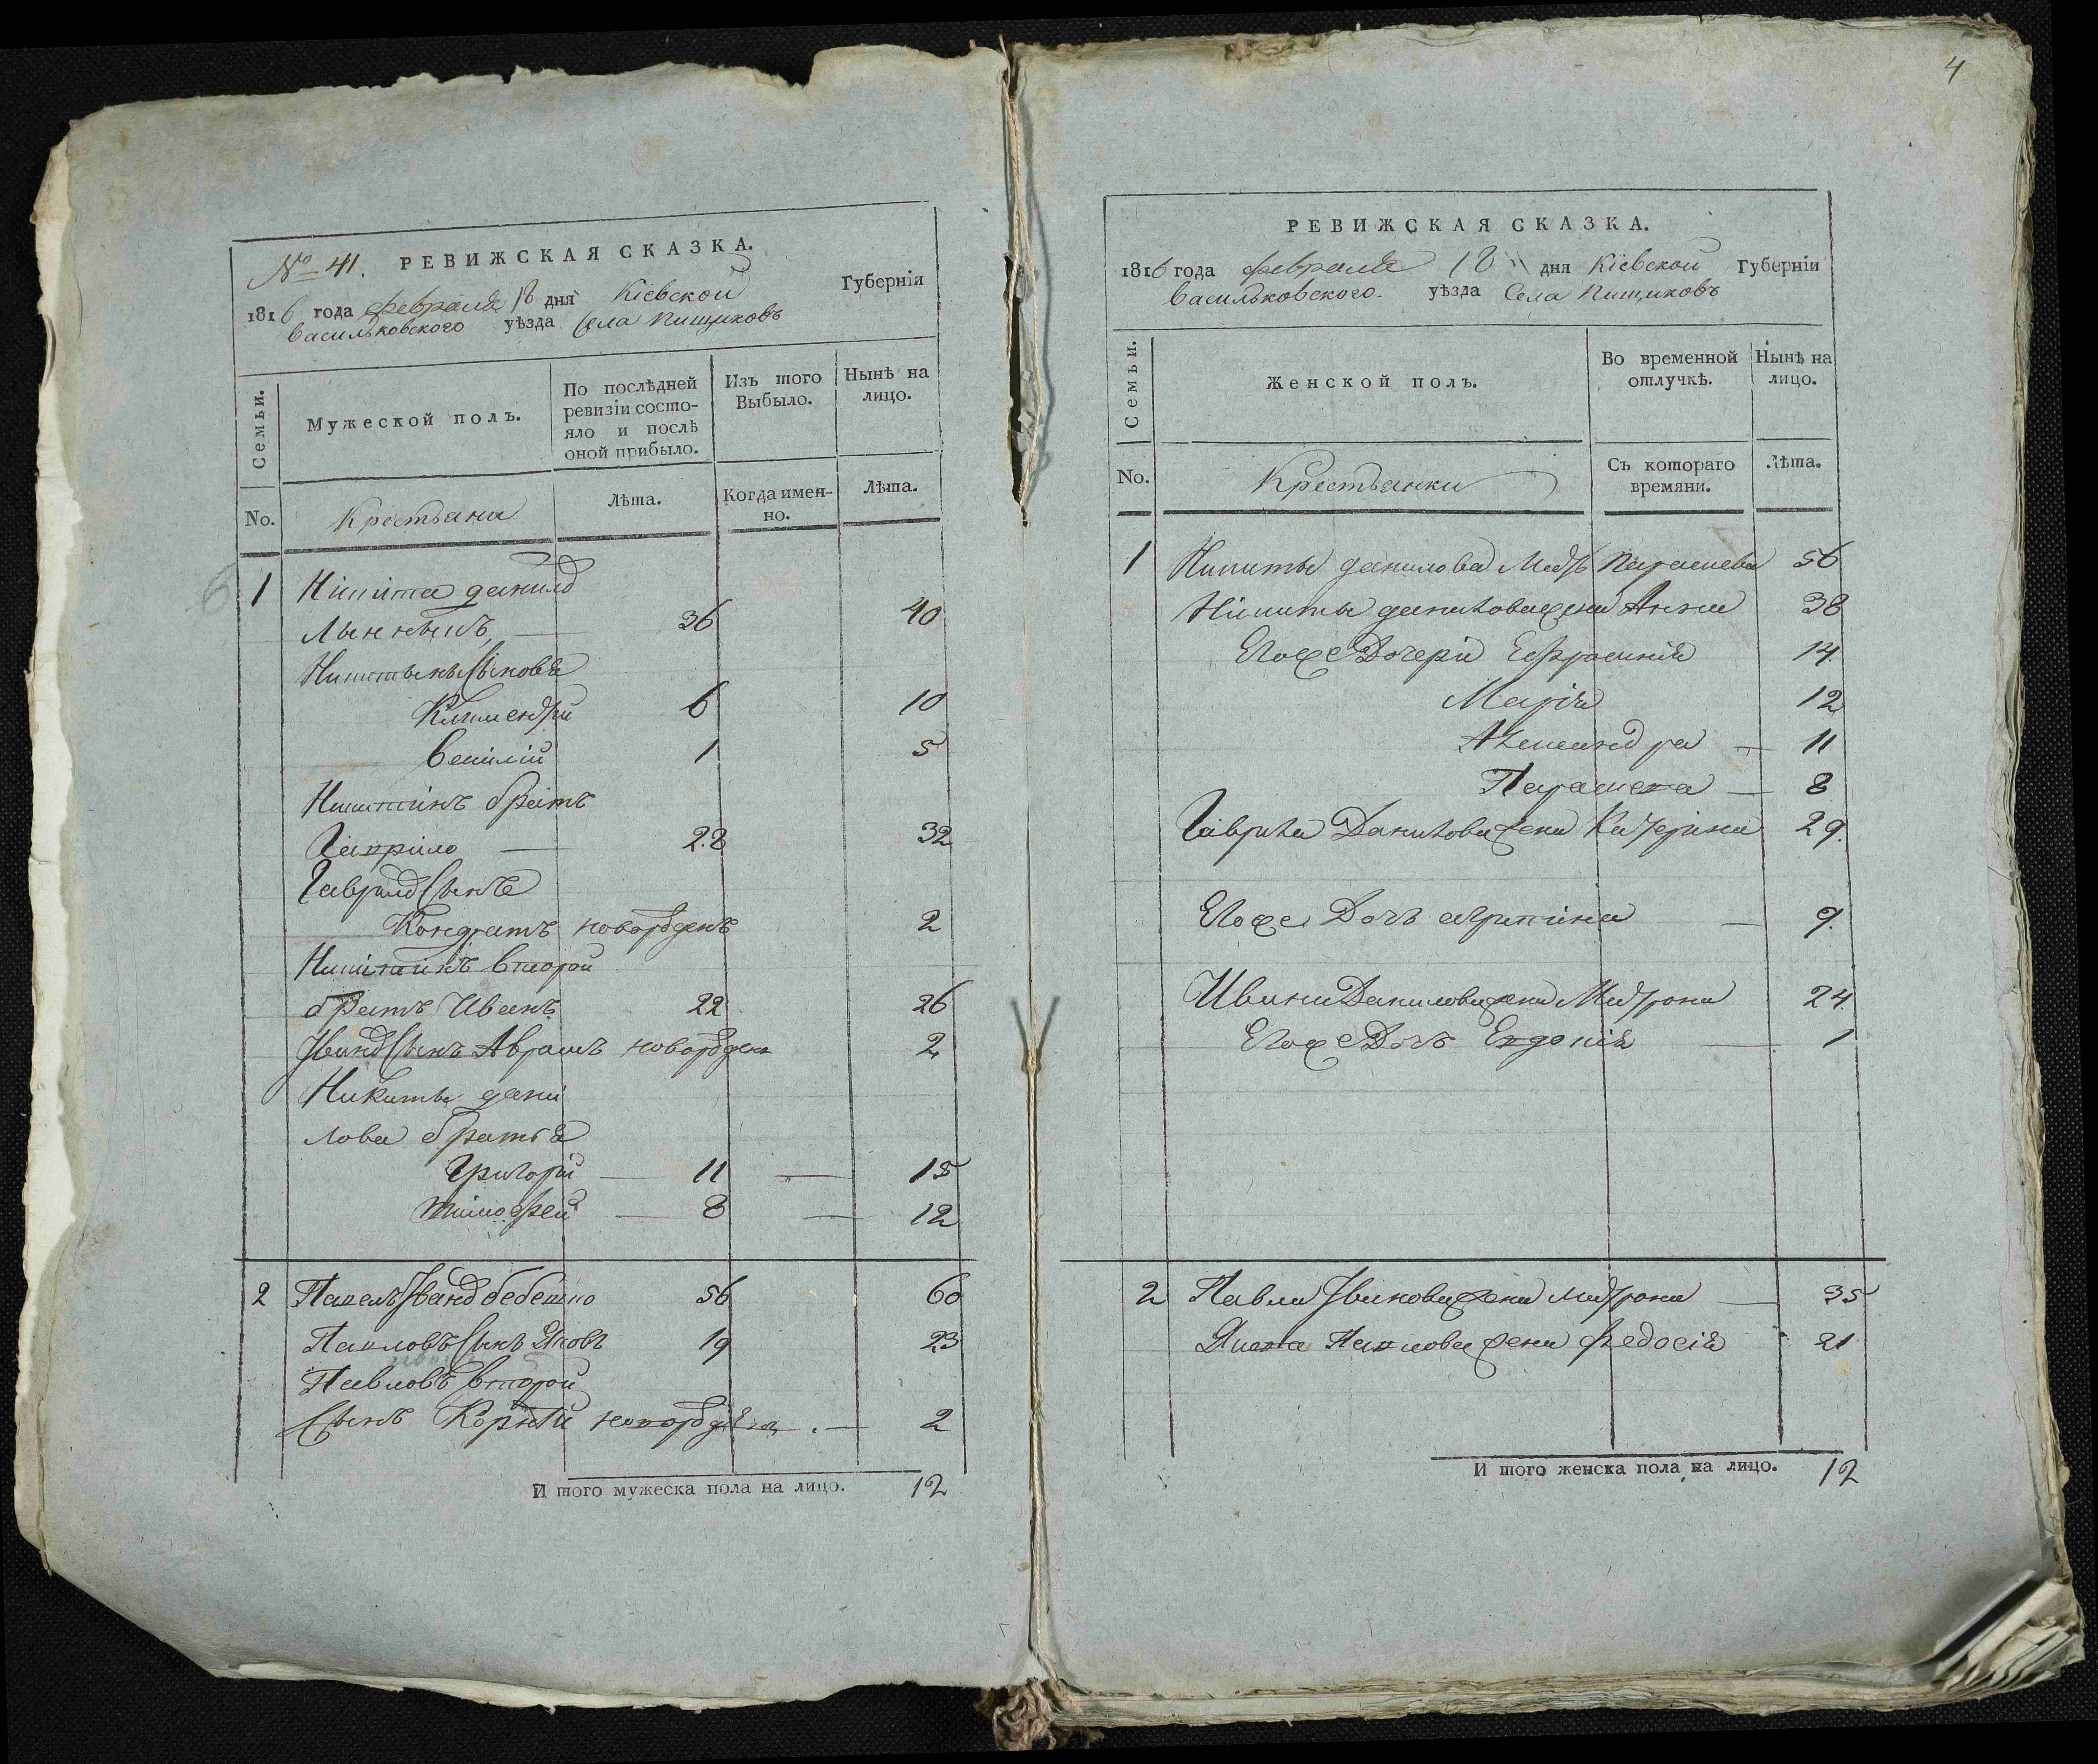 4
№ 41. РЕВИЖСКАЯ СКАЗКА.
1816 года февраля 18 дня Кіевской Губерніи
Васильковского уѣзда Села Пищиковъ
Семьи.
Мужеской полъ.
По послѣдней ревизіи состояло и послѣ оной прибыло.
Изъ того Выбыло.
Нынѣ на лицо.
No.
Крестьяни
Лѣта.
Когда именно.
Лѣта.
1 Нікіта данилов
36 40
Никитины Сыновья
Климентій 6 10
Василій 1 5
Никитинъ братъ
Гаврило 28 32
Гаврилов Сынъ
Кондратъ новорожденъ 2
Никитинъ второй
братъ Иванъ 22 26
Иванов Сынъ Аврамъ новорожден 2
Никиты дани
лова братья
Григорій 11 15
Тимофей 8 12
2 Павелъ Иванов 56 60
Павловъ Сынъ Яковъ 19 23
Павловъ второй
Сынъ Корнѣй новорожден 2
И того мужеска пола на лицо. 12
РЕВИЖСКАЯ СКАЗКА.
1816 года февраля 18 дня Кіевской Губерніи
Васильковского уѣзда Села Пищиковъ
Семьи.
Женской полъ.
Во временной отлучкѣ.
Нынѣ на лицо.
No.
Крестьянки
Съ котораго времяни.
Лѣта.
1 Никиты данилова Мать Парасцева 56
Никиты данилова жена Анна 38
Его же Дочери Ефросинія 14.
Марія 12
Александра 11
Параскева 8
Гаврила Данилова жена Катерина 29.
Его же Дочь агрипина 9.
Ивана Данилова жена Матрона 24.
Его же Дочь Евдокія 1
2 Павла Иванова жена Матрона 35
Якова Павлова жена Федосія 21
И того женска пола на лицо. 12